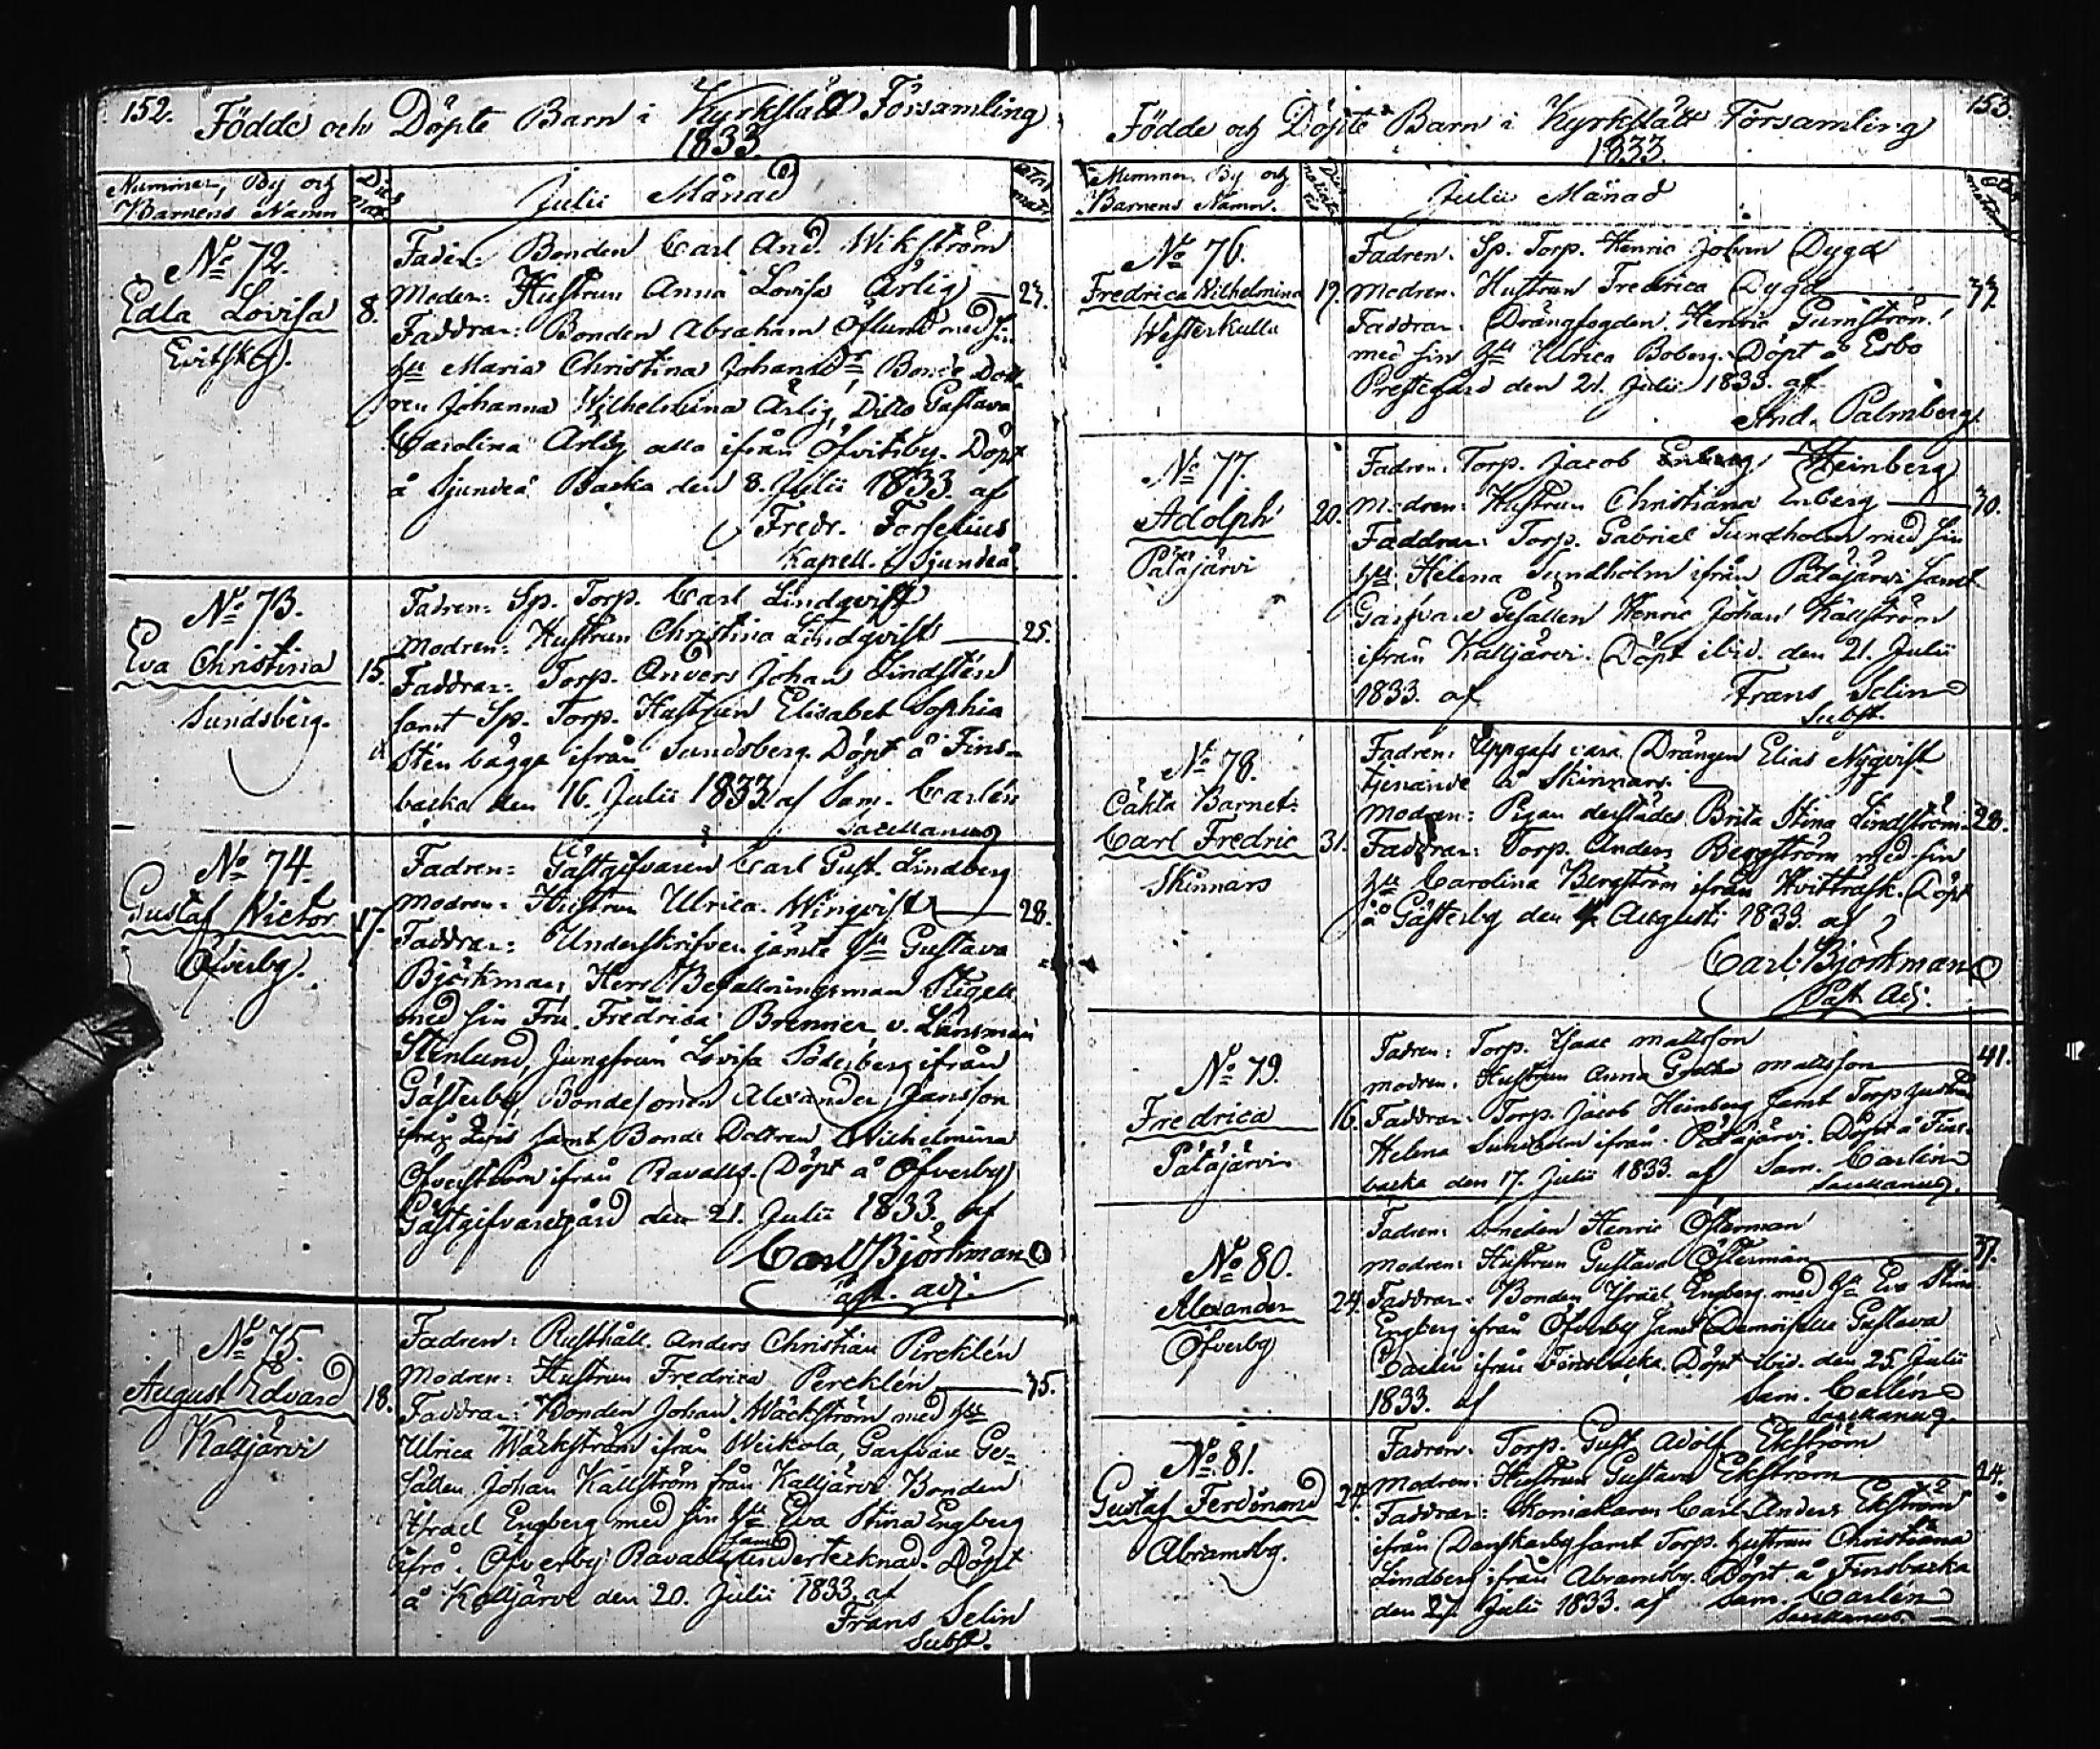 152.
Födde och Döpte Barn i Kyrkslätt Församling
1833.
Nummer, By och
Barnens Namn
Dies
Julii Månad
No 72.
Edla Lovisa
Evitskog.
8.
Fadren: Bonden Carl And. Wikström
Modren: Hustrun Anna Lovisa Ärlig — 27.
Faddrar: Bonden Abraham Öflund med sin
Hu Maria Christina Johansdr, Bonde Dott
ren Johanna Wilhelmina Ärlig, Ditto Gustava
Carolina Ärlig alla ifrån Öfvitsby. Döpt
å Sjundeå Backa den 8. Julii 1833. af
Fredr. Forselius
Kapell. i Sjundeå.
No 73.
Eva Christina
Sundsberg.
15.
Fadren: Sp. Torp. Carl Lindqvist
Modren: Hustrun Christina Lindqvist — 25.
Faddrar: Torp. Anders Johan Lindstén
samt Sp. Torp. Hustrun Elisabet Sophia
Stén bägge ifrån Sundsberg. Döpt å Fins-
backa den 16. Julii 1833. af Sam. Carlén
Sacellanus
No 74.
Gustaf Victor
Öfverby.
17.
Fadren: Gästgifvaren Carl Gust. Lindberg
Modren: Hustrun Ulrica Winqvist — 28.
Faddrar: Underskrifven jämte Hu Gustava
Björkman, Herr Befallningsman Stigell
med sin Fru Fredrica Brenner v. Länsman
Stenlund, Jungfrun Lovisa Söderberg ifrån
Gästerby, Bondesonen Alexander Jansson
ifrån samt Bonde Dottren Wilhelmina
Öfverström ifrån Ravalls. Döpt å Öfverby
Gästgifvaregård den 21. Julii 1833. af
Carl Björkman
Past. adj.
No 75.
August Edvard
Kalljärvi
18.
Fadren: Rusthåll. Anders Christian Pércklén
Modren: Hustrun Fredrica Percklén — 35.
Faddrar: Bonden Johan Wäckström med Hu
Ulrica Wäckström ifrån Weikola, Garfvare Ge-
sällen Johan Källström från Kalljärvi Bonden
Israel Engberg med sin Hu Eva Stina Engberg
ifrå. Öfverby Ravalls samt undertecknad. Döpt
å Kalljärvi den 20. Julii 1833. af
Frans Selin
Subst.
153.
Födde och Döpte Barn i Kyrkslätt Församling
1833.
Nummer, By och
Barnens Namn.
Julii Månad
No 76.
Fredrica Wilhelmina
Westerkulla
19.
Fadren: Sp. Torp. Henric Johan Dygd
Modren: Hustrun Fredrica Dygd — 37.
Faddrar: Drängfogden Henric Gumström
med sin Hu Ulrica Boberg. Döpt å Esbo
Prestegård den 21. Julii 1833. af
And. Palmberg
No 77.
Adolph
Pätäjärvi
20.
Fadren: Torp. Jacob Enberg Heinberg
Modren: Hustrun Christiana Enberg — 30.
Faddrar: Torp. Gabriel Sundholm med sin
Hu Helena Sundholm ifrån Pätäjärvi samt
Garfvare Gesällen Henric Johan Källström
ifrån Kalljärvi. Döpt ibid. den 21. Julii
1833. af Frans Selin
Subst.
No 78.
Oäkta Barnet:
Carl Fredric
Skinnars
31.
Fadren: Uppgifs vara Drängen Elias Nyqvist
tjenande å Skinnars.
Modren: Pigan derstädes Brita Stina Lindström — 28.
Faddrar: Torp. Anders Bergström med sin
Hu Carolina Bergström ifrån Hvitträsk. Döpt
å Gästerby den 4 Augusti 1833. af
Carl Björkman
Past. Adj.
No 79.
Fredrica
Pätäjärvi
16.
Fadren: Torp. Isaac Mattsson
Modren: Hustrun Anna Greta Mattsson — 41.
Faddrar: Torp. Jacob Heinberg samt Torp. Hustrun
Helena Sundholm ifrån Pätäjärvi. Döpt å Fins-
backa den 17. Julii 1833. af Sam. Carlén
Sacellanus.
No 80.
Alexander
Öfverby
24.
Fadren: Smeden Henric Österman
Modren: Hustrun Gustava Österman — 37.
Faddrar: Bonden Israel Engberg med Hu Eva Stina
Engberg ifrån Öfverby samt Demoiselle Gustava
Carlén ifrån Finsbacka. Döpt ibid. den 25. Julii
1833. af Sam. Carlén
Sacellanus.
No 81.
Gustaf Ferdinand
Abramsby.
24.
Fadren: Torp. Gust. Adolf Ekström
Modren: Hustrun Gustava Ekström — 24.
Faddrar: Skomakaren Carl Anders Ekström
ifrån Danskarby samt Torp. Hustrun Christiana
Lindberg ifrån Abramsby. Döpt å Finsbacka
den 27. Julii 1833. af Sam. Carlén
Sacellanus.